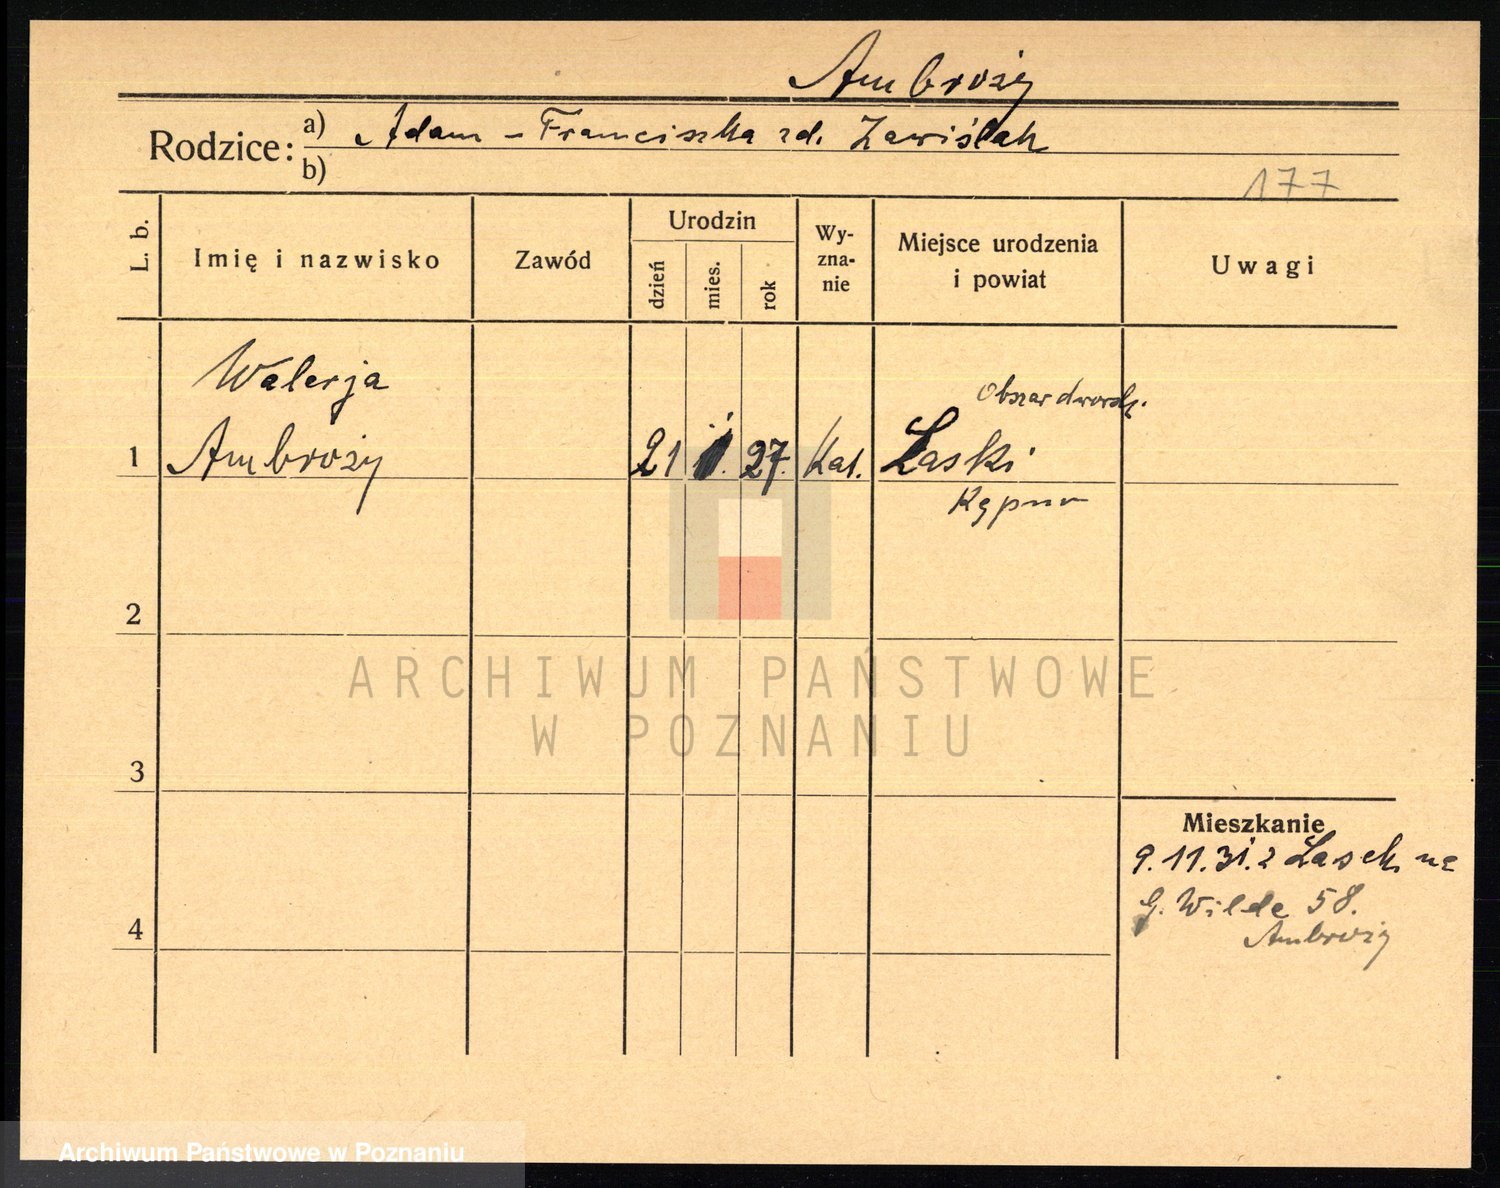 Ambroży
Rodzice: a) Adam – Franciszka zd. Zawiślak
b)
177
L. b.
Imię i nazwisko
Zawód
Urodzin
dzień
mies.
rok
Wy-
zna-
nie
Miejsce urodzenia
i powiat
Uwagi
Walerja
Obszar dworsk.
1 Ambroży 21 27. Kat. Laski
Kępno
2
ARCHIWUM PAŃSTWOWE
W POZNANIU
3
Mieszkanie
9.11.31. z Lasek na
G. Wilde 58.
Ambroży
4
Archiwum Państwowe w Poznaniu